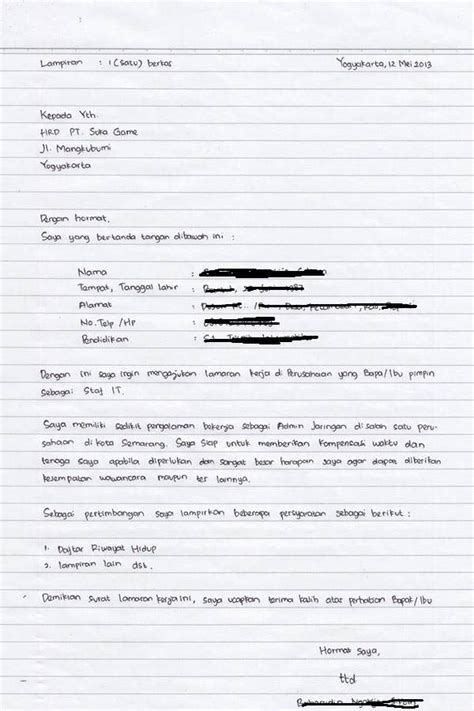 Lampiran : 1 (satu) berkas Yogyakarta, 12 Mei 2013
Kepada Yth.
HRD PT. Suka Game
Jl. Mangkubumi
Yogyakarta
Dengan hormat,
Saya yang bertanda tangan dibawah ini :
Nama :
Tempat, Tanggal lahir :
Alamat :
No. Telp / HP :
Pendidikan :
Dengan ini saya ingin mengajukan lamaran kerja di Perusahaan yang Bapa/Ibu pimpin
sebagai Staf IT.
Saya memiliki sedikit pengalaman bekerja sebagai Admin Jaringan di salah satu peru-
sahaan di kota Semarang. Saya siap untuk memberikan kompensasi waktu dan
tenaga saya apabila diperlukan dan sangat besar harapan saya agar dapat diberikan
kesempatan wawancara maupun tes lainnya.
Sebagai pertimbangan saya lampirkan beberapa persyaratan sebagai berikut :
1. Daftar Riwayat Hidup
2. lampiran lain dst.
Demikian surat lamaran kerja ini, saya ucapkan terima kasih atas perhatian Bapak/Ibu
Hormat Saya,
ttd